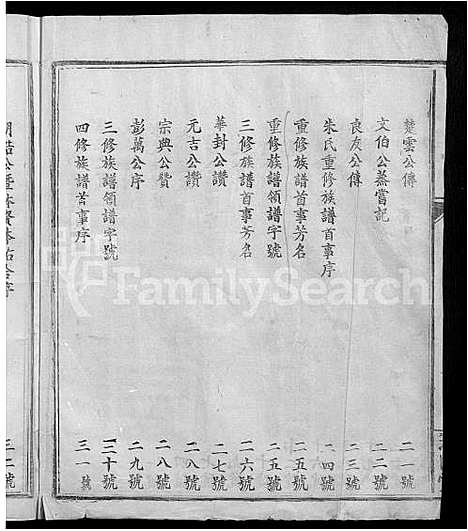 楚雲公傳 二一號
文伯公蒸嘗記 二二號
良友公傳 二三號
朱氏重修族譜首事序 二四號
重修族譜首事芳名 二五號
重修族譜領譜字號 二五號
三修族譜首事芳名 二六號
華封公讚 二七號
元吉公讚 二八號
宗典公贊 二八號
彭萬公序 二九號
三修族譜領譜字號 三十號
四修族譜首事序 三一號
三一號
FamilySearch